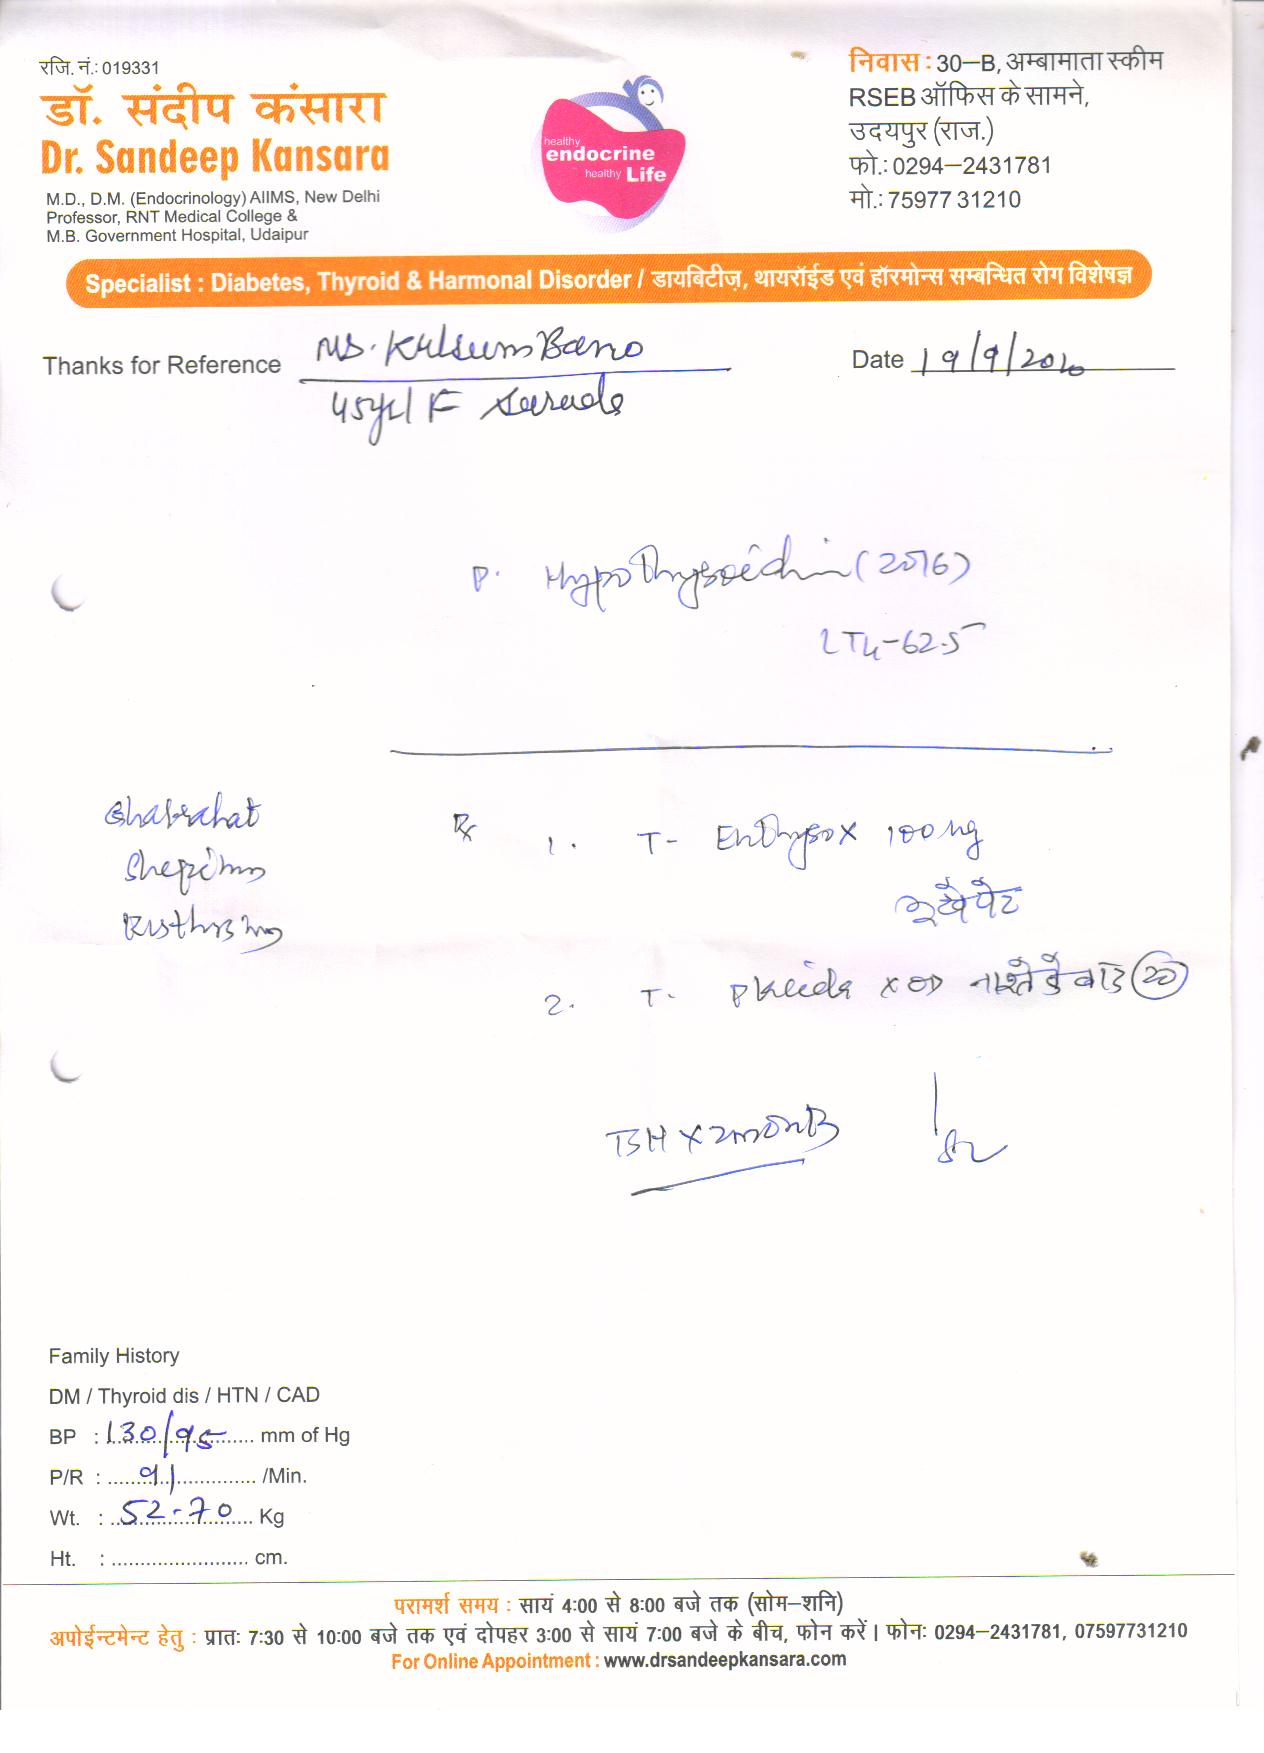 रजि. नं.: 019331
डॉ. संदीप कंसारा
Dr. Sandeep Kansara
M.D., D.M. (Endocrinology) AIIMS, New Delhi
Professor, RNT Medical College &
M.B. Government Hospital, Udaipur
healthy
endocrine
healthy Life
निवास : 30–B, अम्बामाता स्कीम
RSEB ऑफिस के सामने,
उदयपुर (राज.)
फो.: 0294–2431781
मो.: 75977 31210
Specialist : Diabetes, Thyroid & Harmonal Disorder / डायबिटीज़, थायरॉईड एवं हॉरमोन्स सम्बन्धित रोग विशेषज्ञ
Thanks for Reference Ms. Kulsum Bano
Date 19/9/2020
45yr/F
P. Hypothyroidin (2016)
LT4-62.5
Ghabrahat
Rx 1. T- Enthyrox 100 mg
भूखे पेट
2. T- x OD नाश्ते के बाद 20
TSH x 2 month
Family History
DM / Thyroid dis / HTN / CAD
BP : 130/95 mm of Hg
P/R : 91 /Min.
Wt. : 52.70 Kg
Ht. : ........................ cm.
परामर्श समय : सायं 4:00 से 8:00 बजे तक (सोम–शनि)
अपोईन्टमेन्ट हेतु : प्रातः 7:30 से 10:00 बजे तक एवं दोपहर 3:00 से सायं 7:00 बजे के बीच, फोन करें। फोनः 0294–2431781, 07597731210
For Online Appointment : www.drsandeepkansara.com